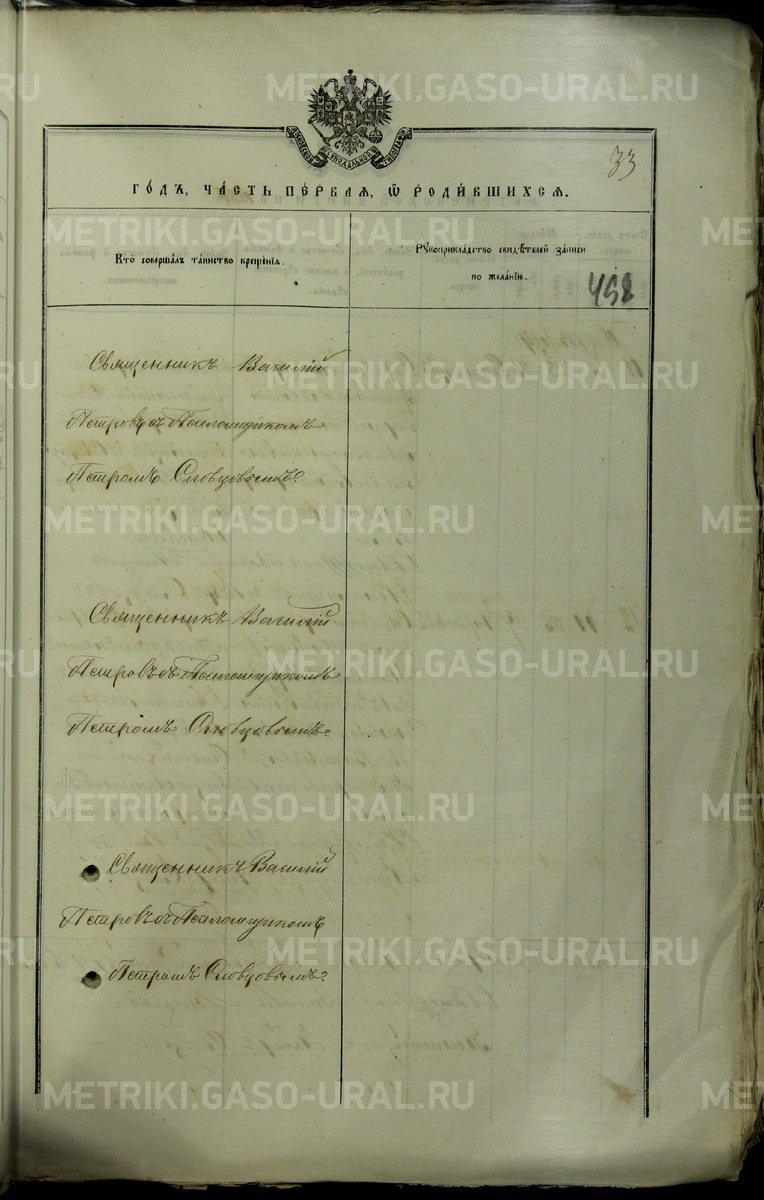 METRIKI.GASO-URAL.RU
33
ГО́ДЪ, ЧА́СТЬ ПЕ́РВАЯ, Ѡ РОДИ́ВШИХСЯ.
Кто̀ соверша́лъ та́инство креще́нїя.
Рꙋкоприкла́дство свидѣ́телей за́писи
по жела́нїю.
458
Священникъ Василій
Петровъ съ Псаломщикомъ
Петромъ Словцовымъ.
Священникъ Василій
Петровъ съ Псаломщикомъ
Петромъ Словцовымъ.
Священникъ Василій
Петровъ съ Псаломщикомъ
Петромъ Словцовымъ.